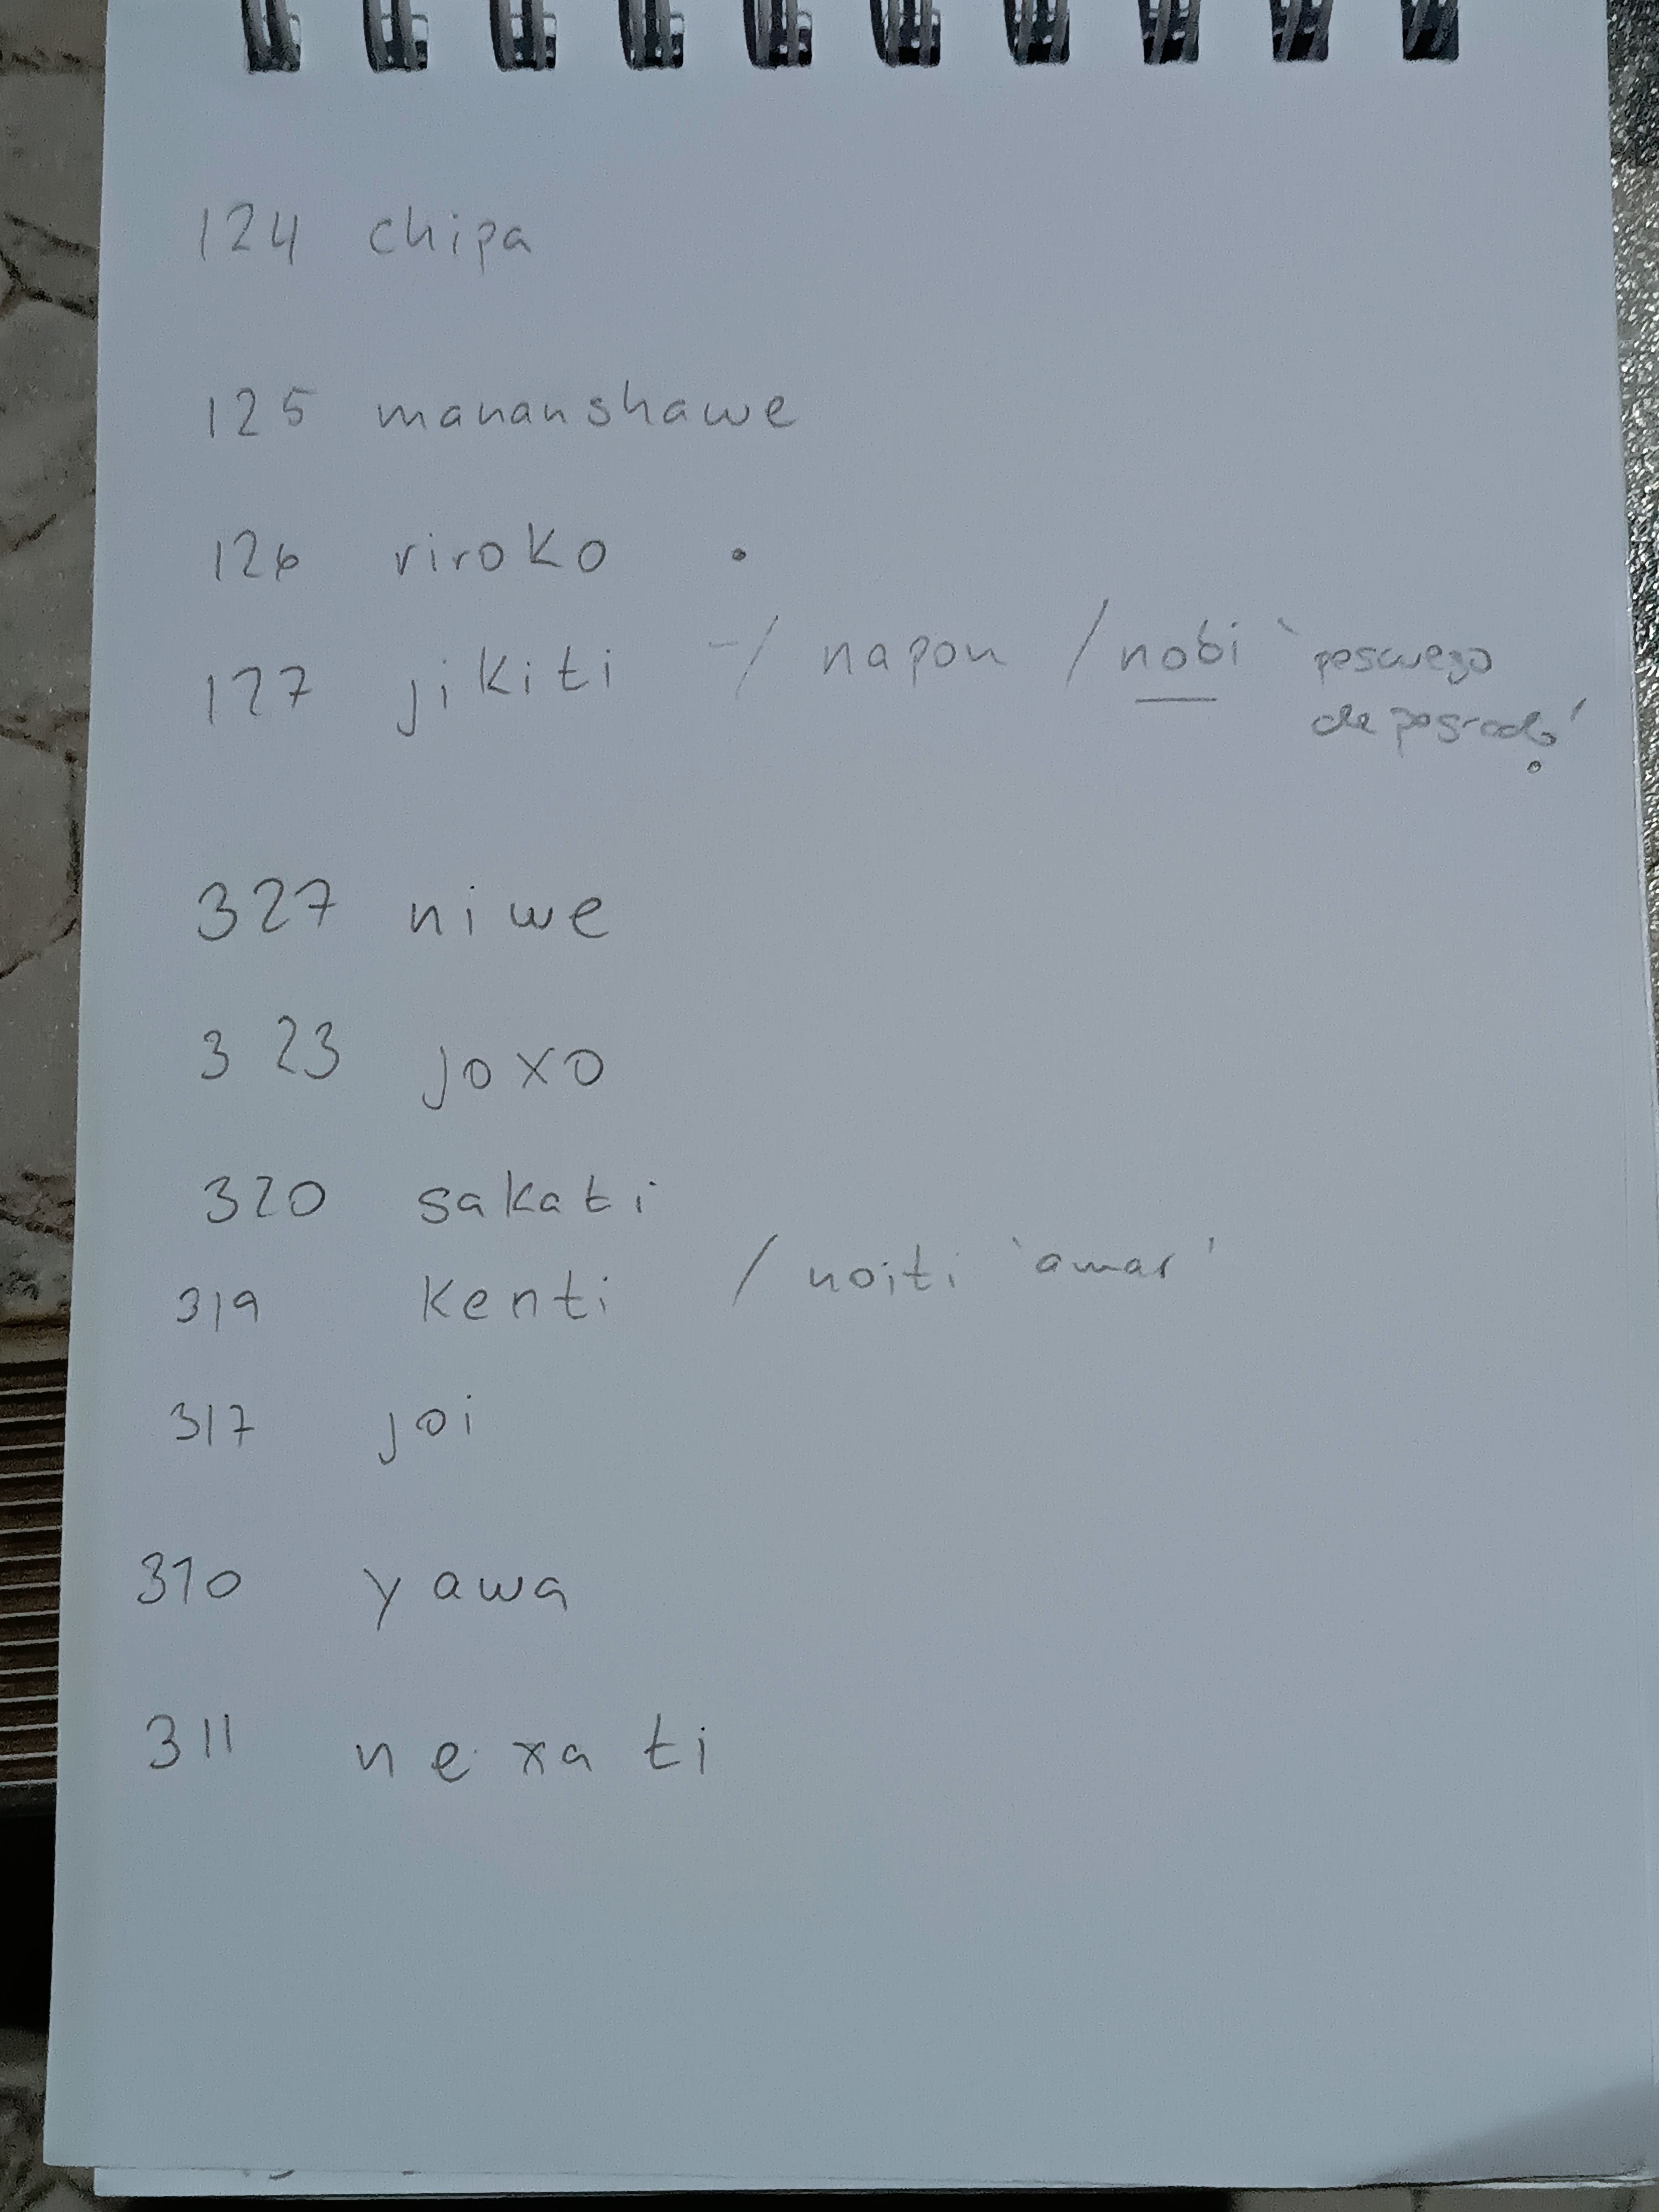 124 chipa
125 mananshawe
126 riroko .
127 jikiti -/ napon / nobi `
327 niwe
323 joxo
320 sakati
319 kenti / noiti 'amar'
317 joi
310 yawa
311 nexati